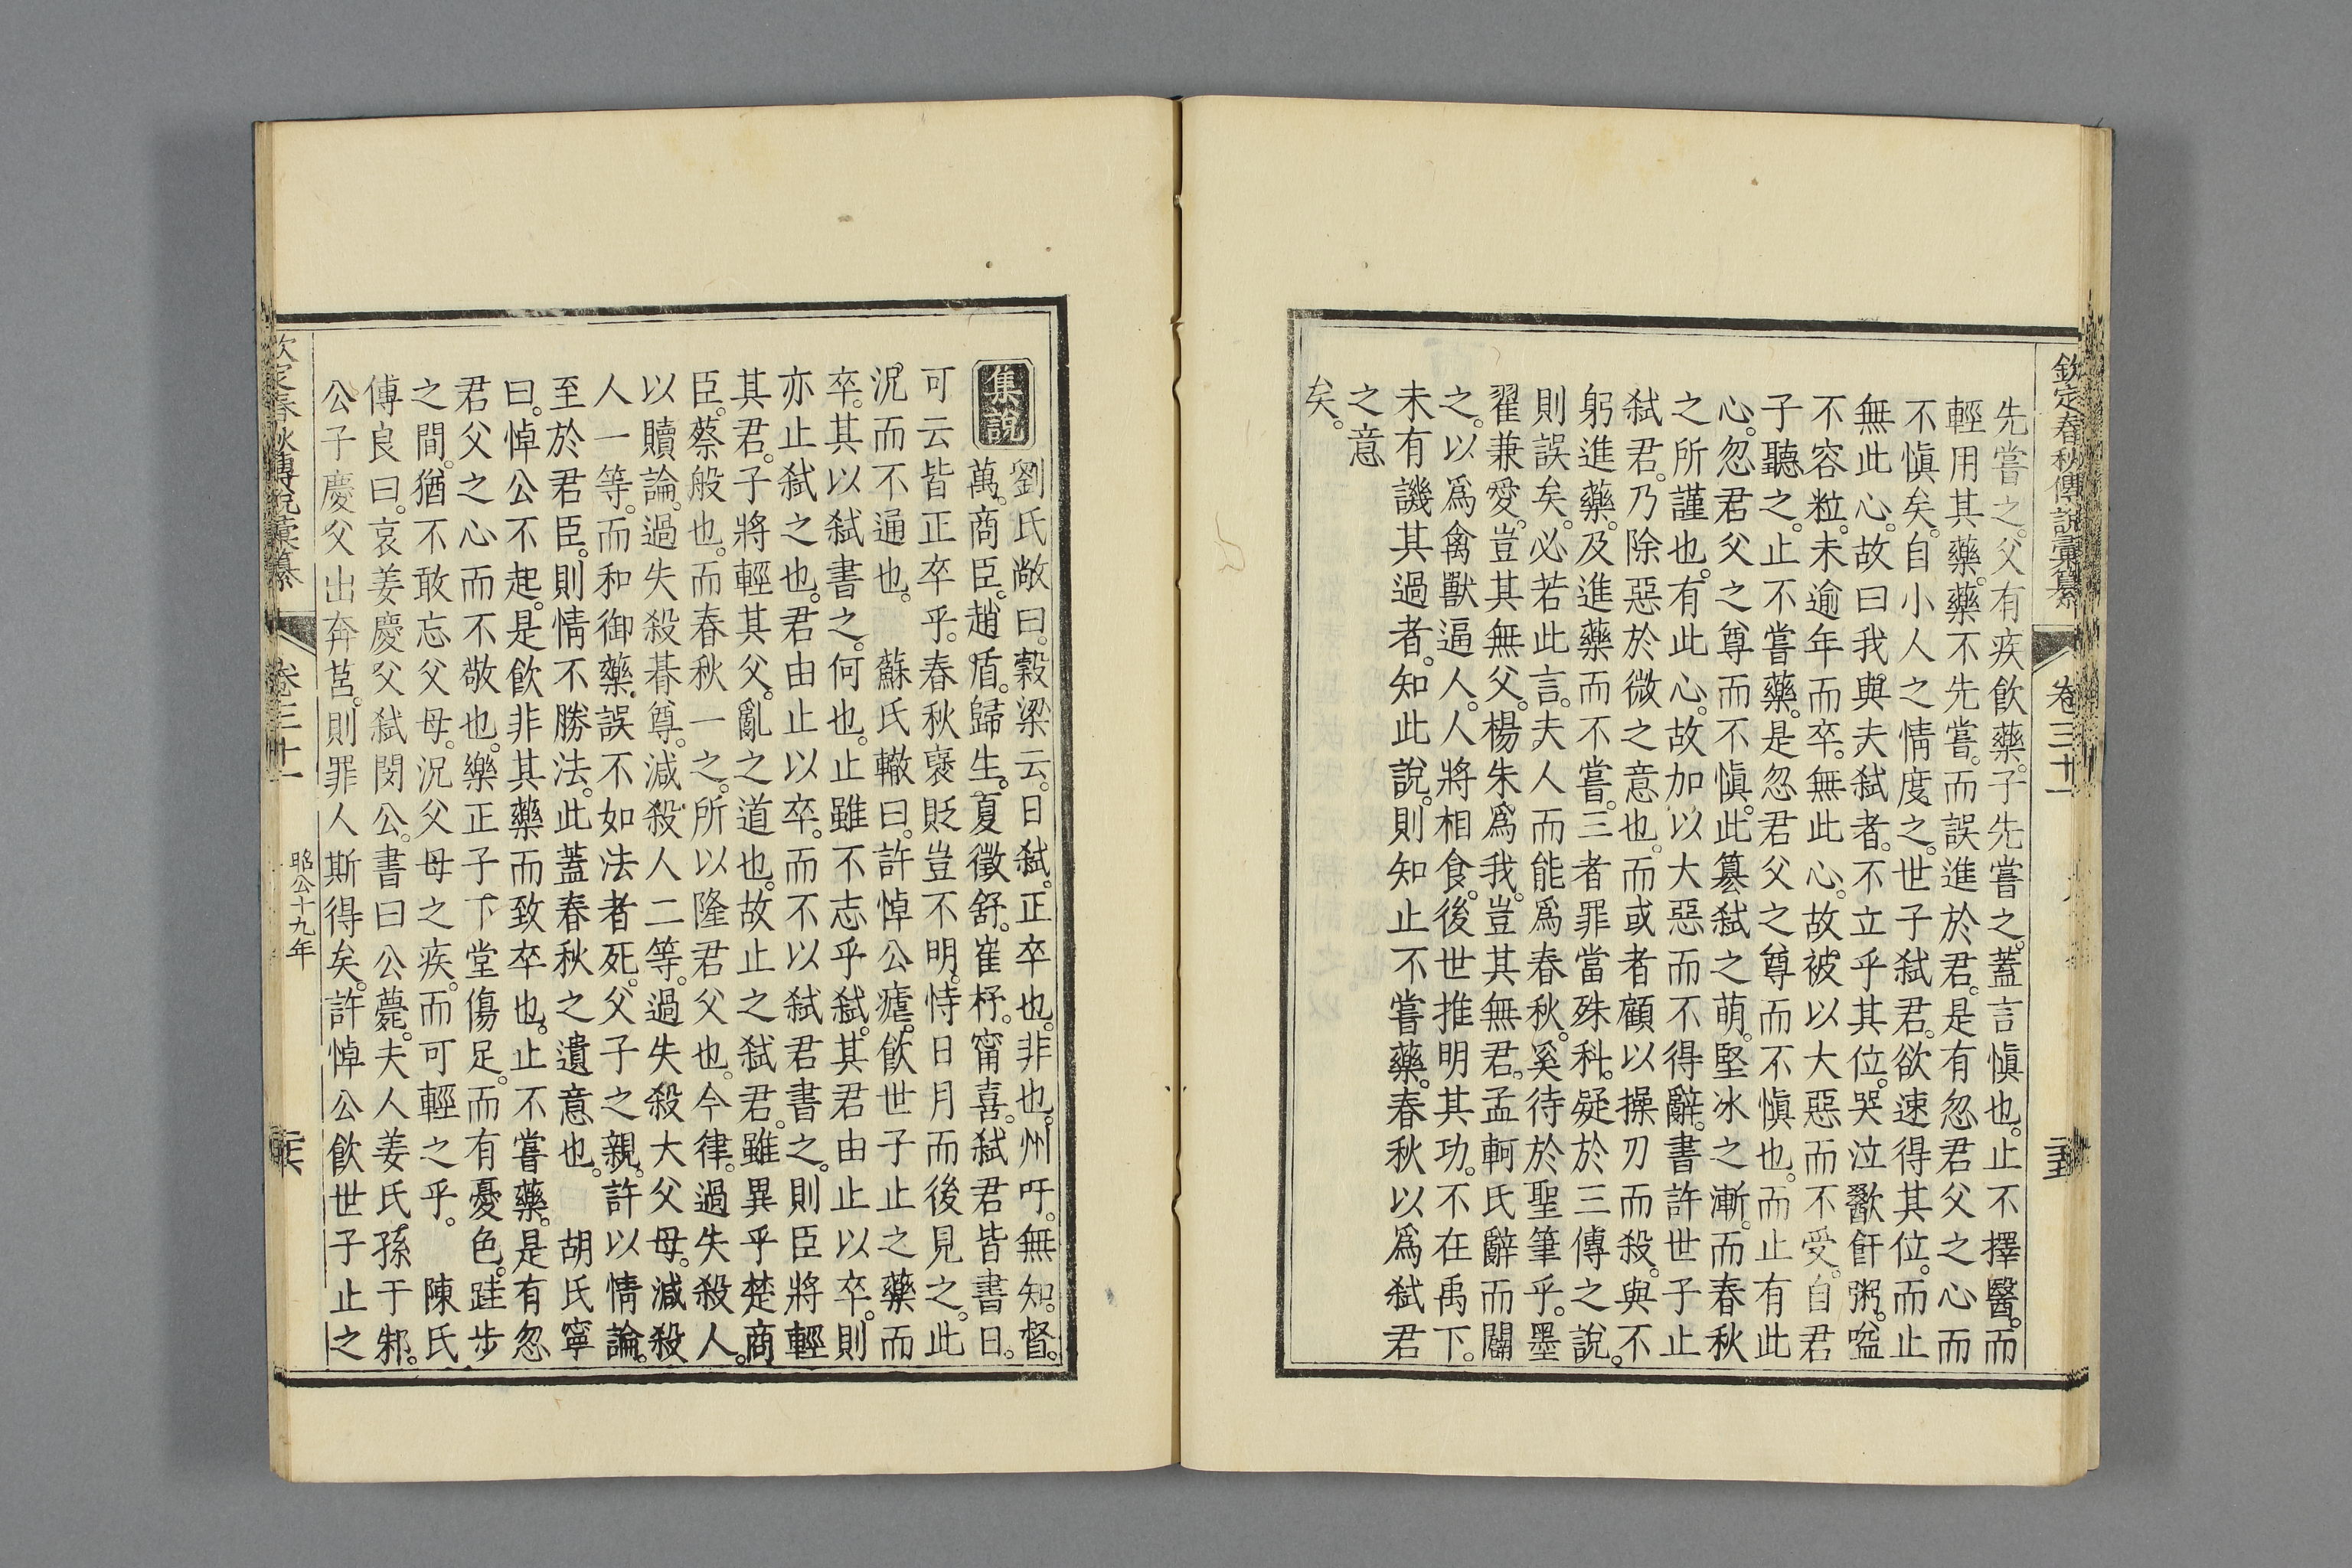 欽定春秋傳說彙纂 卷三十一
先嘗之。父有疾飲藥。子先嘗之。蓋言愼也。止不擇醫。而
輕用其藥。藥不先嘗。而誤進於君。是有忽君父之心而
不愼矣。自小人之情度之。世子弑君。欲速得其位。而止
無此心。故曰我與夫弑者。不立乎其位。哭泣歠飦粥。嗌
不容粒。未逾年而卒。無此心。故被以大惡而不受。自君
子聽之。止不嘗藥。是忽君父之尊而不愼也。而止有此
心。忽君父之尊而不愼。此簒弑之萌。堅冰之漸。而春秋
之所謹也。有此心。故加以大惡而不得辭。書許世子止
弑君。乃除惡於微之意也。而或者顧以操刃而殺。與不
躬進藥。及進藥而不嘗。三者罪當殊科。疑於三傳之說。
則誤矣。必若此言。夫人而能爲春秋。奚待於聖筆乎。墨
翟兼愛。豈其無父。楊朱爲我。豈其無君。孟軻氏辭而闢
之。以爲禽獸逼人。人將相食。後世推明其功。不在禹下。
未有譏其過者。知此說。則知止不嘗藥。春秋以爲弑君
之意
矣。
集說
劉氏敞曰。穀梁云。日弑。正卒也。非也。州吁。無知。督。
萬。商臣。趙盾。歸生。夏徵舒。崔杼。甯喜。弑君皆書日。
可云皆正卒乎。春秋褒貶豈不明。恃日月而後見之。此
況而不通也。 蘇氏轍曰。許悼公瘧。飲世子止之藥而
卒。其以弑書之。何也。止雖不志乎弑。其君由止以卒。則
亦止弑之也。君由止以卒。而不以弑君書之。則臣將輕
其君。子將輕其父。亂之道也。故止之弑君。雖異乎楚商
臣。蔡般也。而春秋一之。所以隆君父也。今律。過失殺人。
以贖論。過失殺朞尊。減殺人二等。過失殺大父母。減殺
人一等。而和御藥。誤不如法者死。父子之親。許以情論。
至於君臣。則情不勝法。此蓋春秋之遺意也。 胡氏寧
曰。悼公不起。是飲非其藥而致卒也。止不嘗藥。是有忽
君父之心而不敬也。樂正子下堂傷足。而有憂色。跬步
之間。猶不敢忘父母。況父母之疾。而可輕之乎。 陳氏
傅良曰。哀姜慶父弑閔公。書曰公薨。夫人姜氏孫于邾。
公子慶父出奔莒。則罪人斯得矣。許悼公飲世子止之
春秋傳說彙纂 卷三十一 昭公十九年